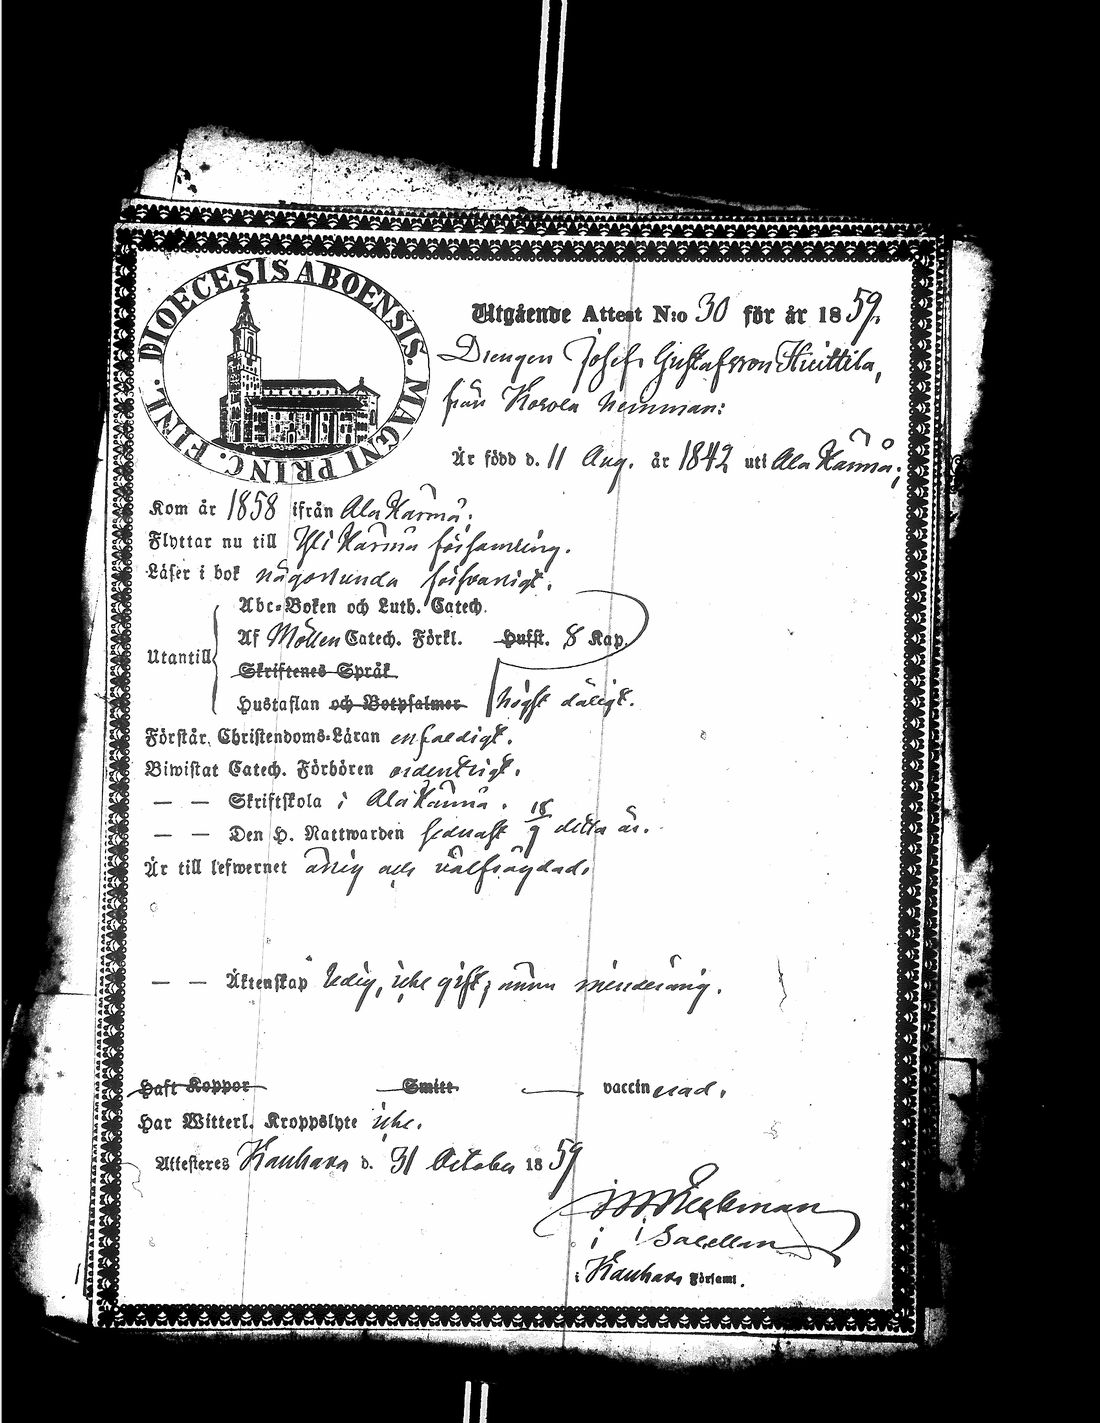 DIOECESIS ABOENSIS. MAGNI PRINC. FINL.
Utgående Attest N:o 30 för år 1859.
Drengen Josef Gustafsson Huittila,
från Kosola hemman:
Är född d. 11 Aug. år 1842 uti Ala Härmä;
Kom år 1858 ifrån Ala Härmä;
Flyttar nu till Yli Härmä församling.
Läser i bok någorlunda försvarligt.
Abc-Boken och Luth. Catech.
Utantill
Af Möllers Catech. Förkl. Hufst. 8 Kap.
Skriftenes Språk
Hustaflan och Botpsalmer högst dåligt.
Förstår Christendoms-Läran enfaldigt.
Biwistat Catech. Förhören ordentligt.
— — Skriftskola i Ala Härmä.
— — Den H. Nattwarden sednast 18/9 detta år.
Är till lefwernet ärlig och välfrägdad.
— — Äktenskap ledig, icke gift, ännu minderårig.
Haft Koppor Smitt — vaccinerad.
Har Witterl. Kroppslyte icke.
Attesteres Kauhava d. 31 October 1859
i Kauhava Församl.